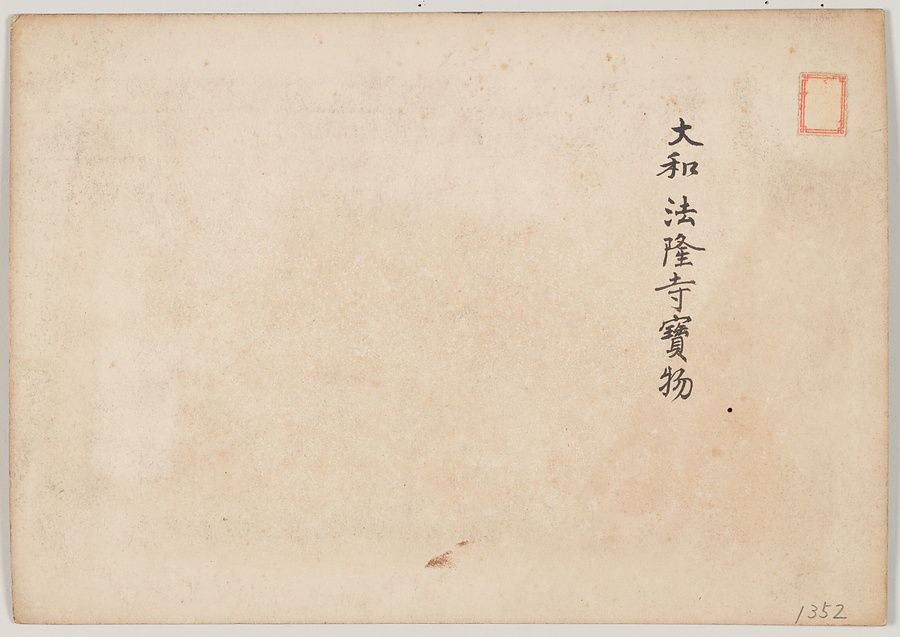 大和 法隆寺寶物
1352